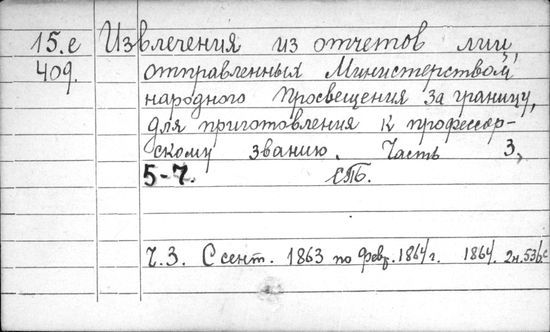 15.е Извлечения из отчетов лиц,
409. отправленных Министерством
народного Просвещения за границу,
для приготовления к профессор-
скому званию. Часть 3,
5-7. СПБ.
Ч.3. С сент. 1863 по февр. 1864 г. 1864. 2н. 536 с